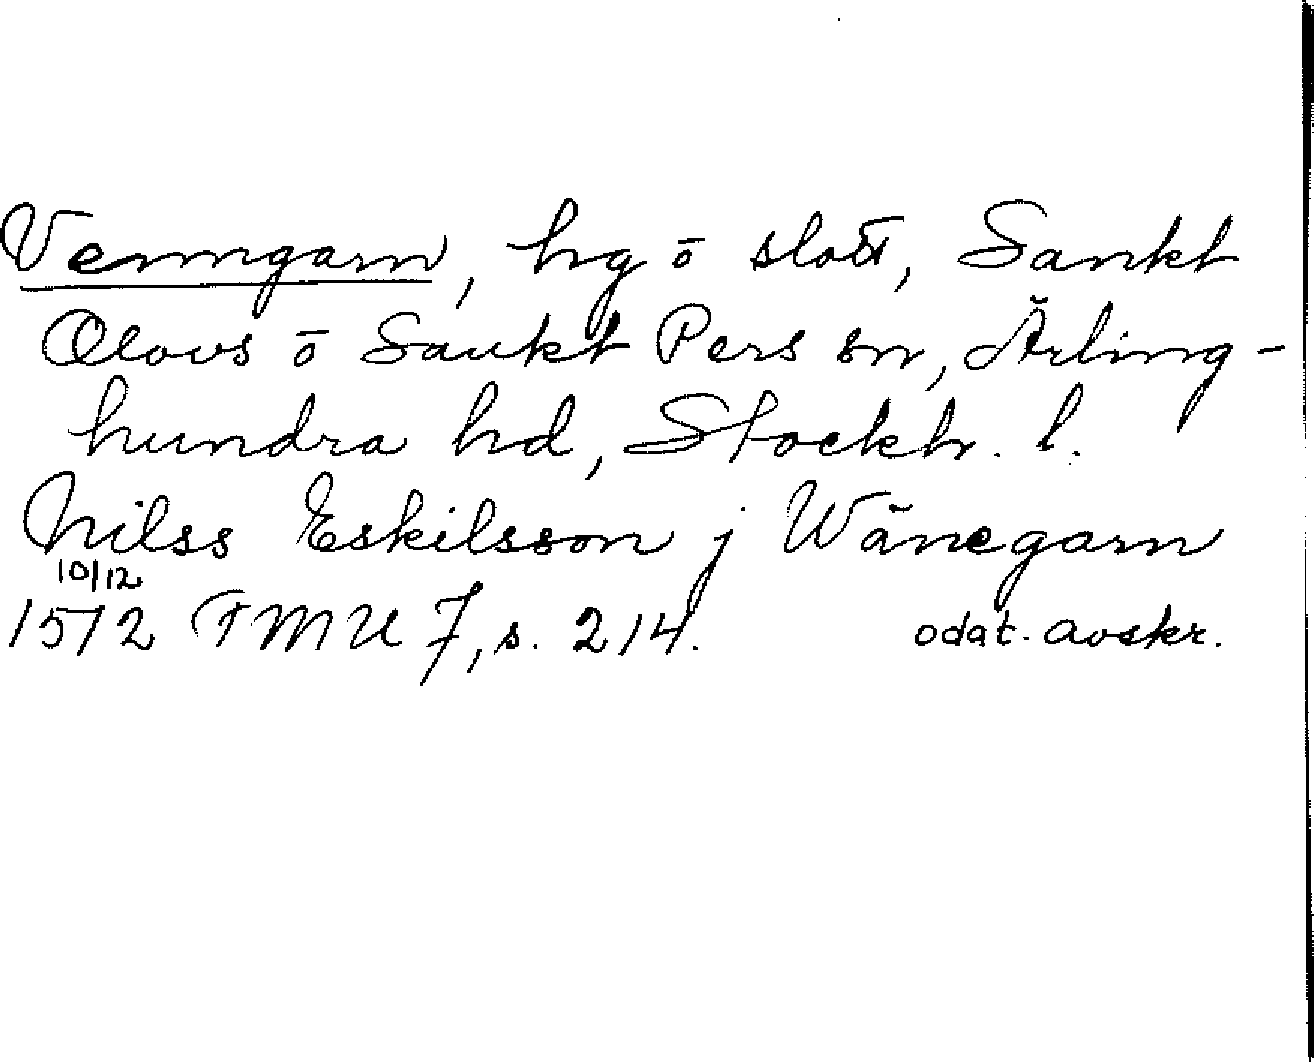 Venngarn, hg ō slott, Sankt
Olovs ō Sankt Pers sn, Ärling-
hundra hd, Stockh. l.
Nilss Eskilsson j Wänegarn
10/12
1512 FMU 7, s. 214. odat. avskr.